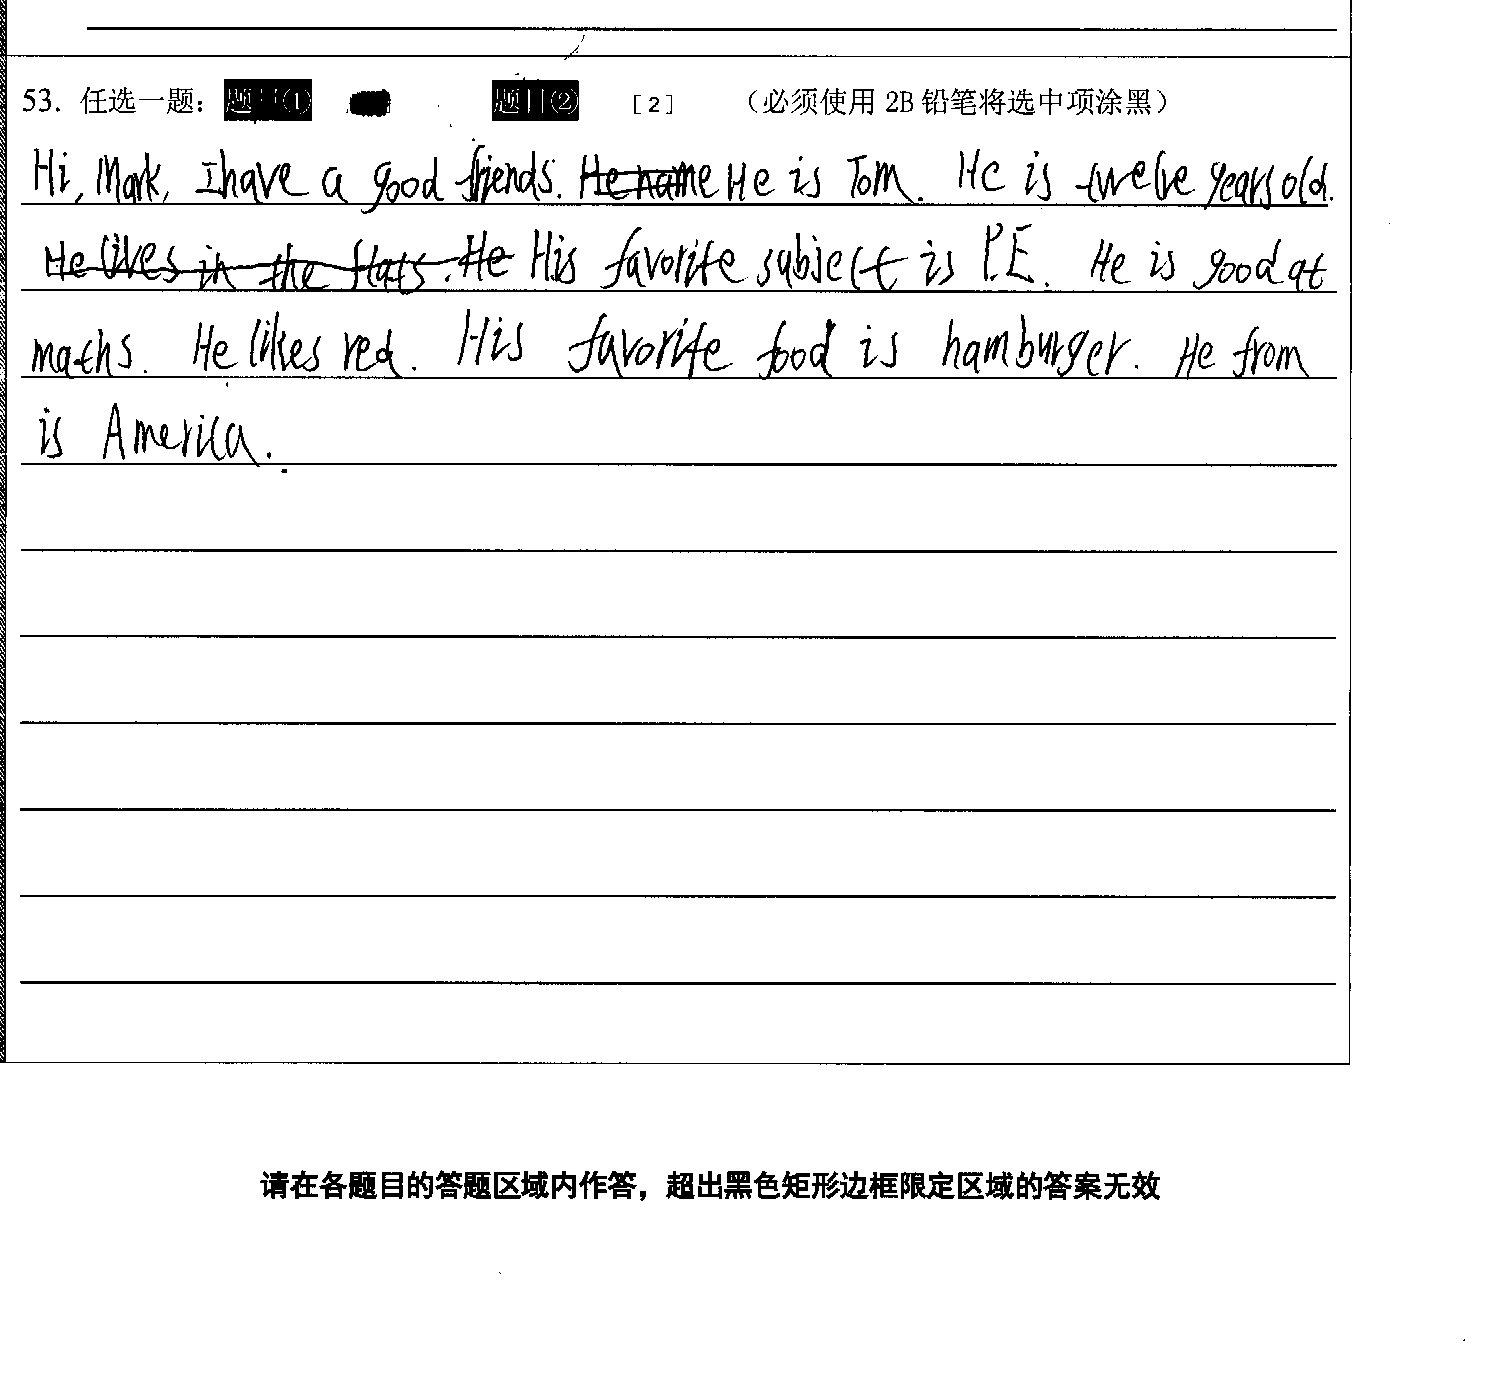 53. 任选一题： 题目(1) 题目(2) [2] （必须使用 2B 铅笔将选中项涂黑）
Hi, Mark, I have a good friends. He name He is Tom. He is twelve years old.
He lives in the flats. He His favorite subject is P.E. He is good at
maths. He likes red. His favorite food is hamburger. He from
is America.
请在各题目的答题区域内作答，超出黑色矩形边框限定区域的答案无效